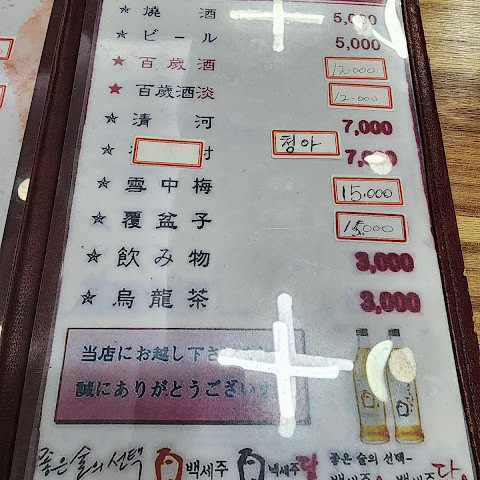 ☆ 燒酒 5,000
☆ ビール 5,000
★ 百歲酒 12,000
★ 百歲酒淡 12,000
☆ 清河 7,000
☆ 청아
☆ 雪中梅 15,000
☆ 覆盆子 15,000
☆ 飲み物 3,000
☆ 烏龍茶 3,000
当店にお越し下さ
誠にありがとうござい
좋은 술의 선택 백세주 백세주담
좋은 술의 선택-
백세주 백세주담